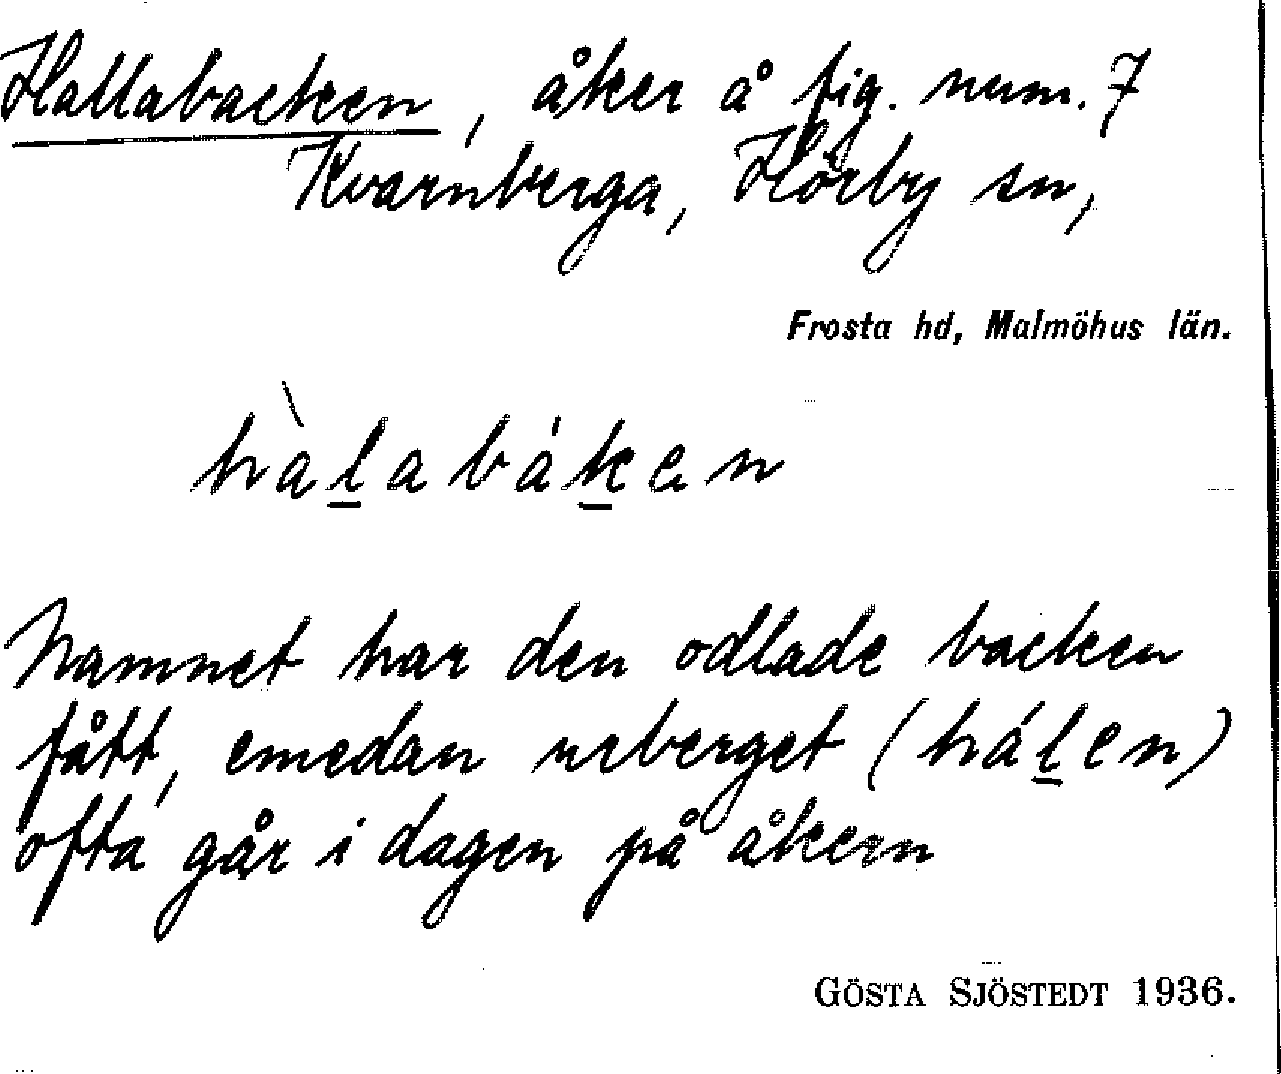 Hallabacken, åker å fig. num. 7
Kvarnberga, Hörby sn,
Frosta hd, Malmöhus län.
hàl̲abák̲en
Namnet har den odlade backen
fått, emedan urberget (hál̲en)
ofta går i dagen på åkern
GÖSTA SJÖSTEDT 1936.